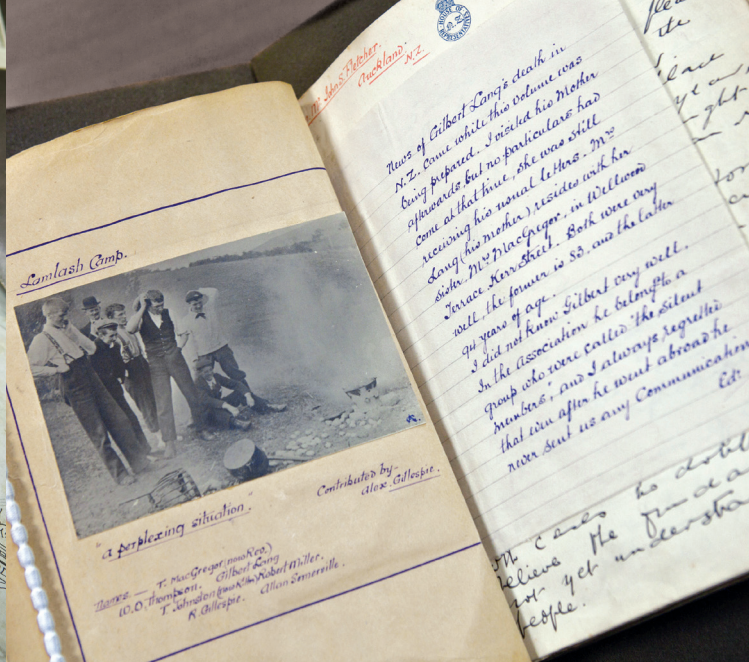 Lamlash Camp.
a perplexing situation.
Contributed by
Alex. Gillespie.
Names — T. MacGregor (now Rev.)
W.D. Thompson. Gilbert Lang
T. Johnston (now K. Robert Miller.
R. Gillespie. Allan Somerville.
HOUSE OF REPRESENTATIVES
N.Z.
John S. Fletcher.
Auckland.
N.Z.
News of Gilbert Lang's death in
N.Z. came while this volume was
being prepared. I visited his Mother
afterwards, but no particulars had
come at that time, she was still
receiving his usual letters. Mrs
Lang (his mother) resides with her
sister, Mrs MacGregor, in Wellwood
Terrace, Kerr Street. Both were very
well, the former is 83, and the latter
94 years of age.
I did not know Gilbert very well.
In the Association he belong to a
group who were called "the silent
members", and I always regretted
that even after he went abroad he
never sent us any Communication
Ed.
the
believe the funda
not yet understoo
people.